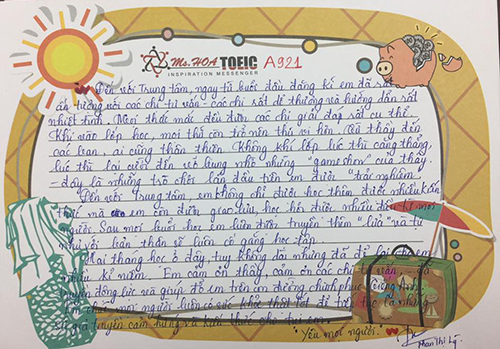 Ms. HOA TOEIC A921
INSPIRATION MESSENGER
Đến với Trung tâm, ngay từ buổi đầu đăng kí em đã rất
ấn tượng với các chị tư vấn - các chị rất dễ thương và hướng dẫn rất
nhiệt tình. Mọi thắc mắc đều được các chị giải đáp rất cụ thể.
Khi vào lớp học, mọi thứ còn trở nên thú vị hơn. Từ thầy đến
các bạn, ai cũng thân thiện. Không khí lớp lúc thì căng thẳng,
lúc thì lại cười đến vỡ bụng nhờ những "gameshow" của thầy
- đây là những trò chơi lần đầu tiên em được "trải nghiệm"
Đến với trung tâm, em không chỉ được học thêm được nhiều kiến
thức mà còn em còn được giao lưu, học hỏi được nhiều điều từ mọi
người. Sau mỗi buổi học em luôn được truyền thêm "lửa" và tự
nhủ với bản thân sẽ luôn cố gắng học tập.
Hai tháng học ở đây, tuy không dài nhưng đã để lại cho em
nhiều kỉ niệm. Em cảm ơn thầy, cảm ơn các chị tư vấn đã
truyền động lực và giúp đỡ em trên con đường chinh phục Tiếng Anh.
Em chúc mọi người luôn có sức khỏe thật tốt để tiếp tục là những
sứ giả truyền cảm hứng và kiến thức cho tụi em.
Yêu mọi người.
Phan Thị Lý